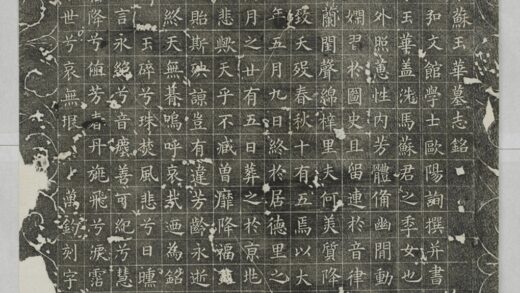 蘇玉華墓志銘
弘文館學士歐陽詢撰并書
玉華盖洗馬蘇君之季女也
外照蕙性内芳體備幽閒動
嫻習於圖史且留連於音律
蘭閨聲綿梓里夫何美質降
致夭殁春秋十有五焉以大
年五月九日終於居德里之
月之廿有五日葬之於京兆
悲歟天乎不臧曾靡降福
貽斯殃諒豈有違芳齡永逝
終天無暮嗚呼哀哉廼為銘
玉碎兮珠焚風悲兮日曛
言永絶兮音塵善可紀兮慧
降兮値芳春丹旐飛兮淚霑
世兮哀無垠 萬鈞刻字